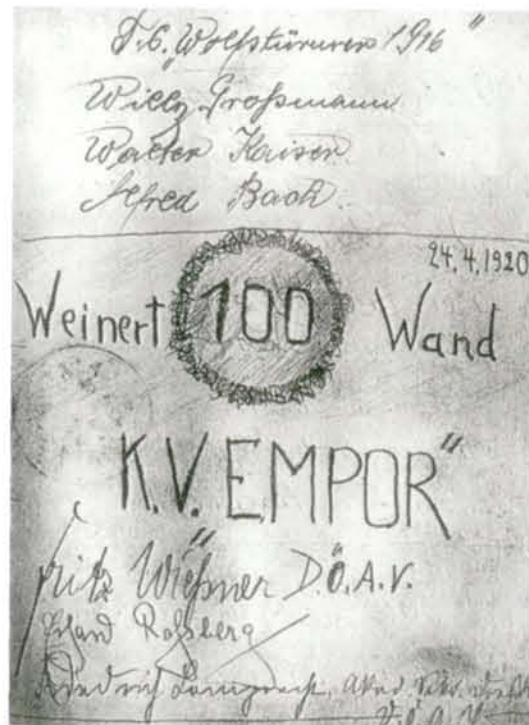 T.C. „Wolfstürmer 1916"
Willy Großmann
Walter Kaiser
Alfred Bach.
24.4.1920
Weinert 100 Wand
K.V. „EMPOR"
Fritz Wießner D.Ö.A.V.
Roßberg
Friedrich Lamprecht, Akad.